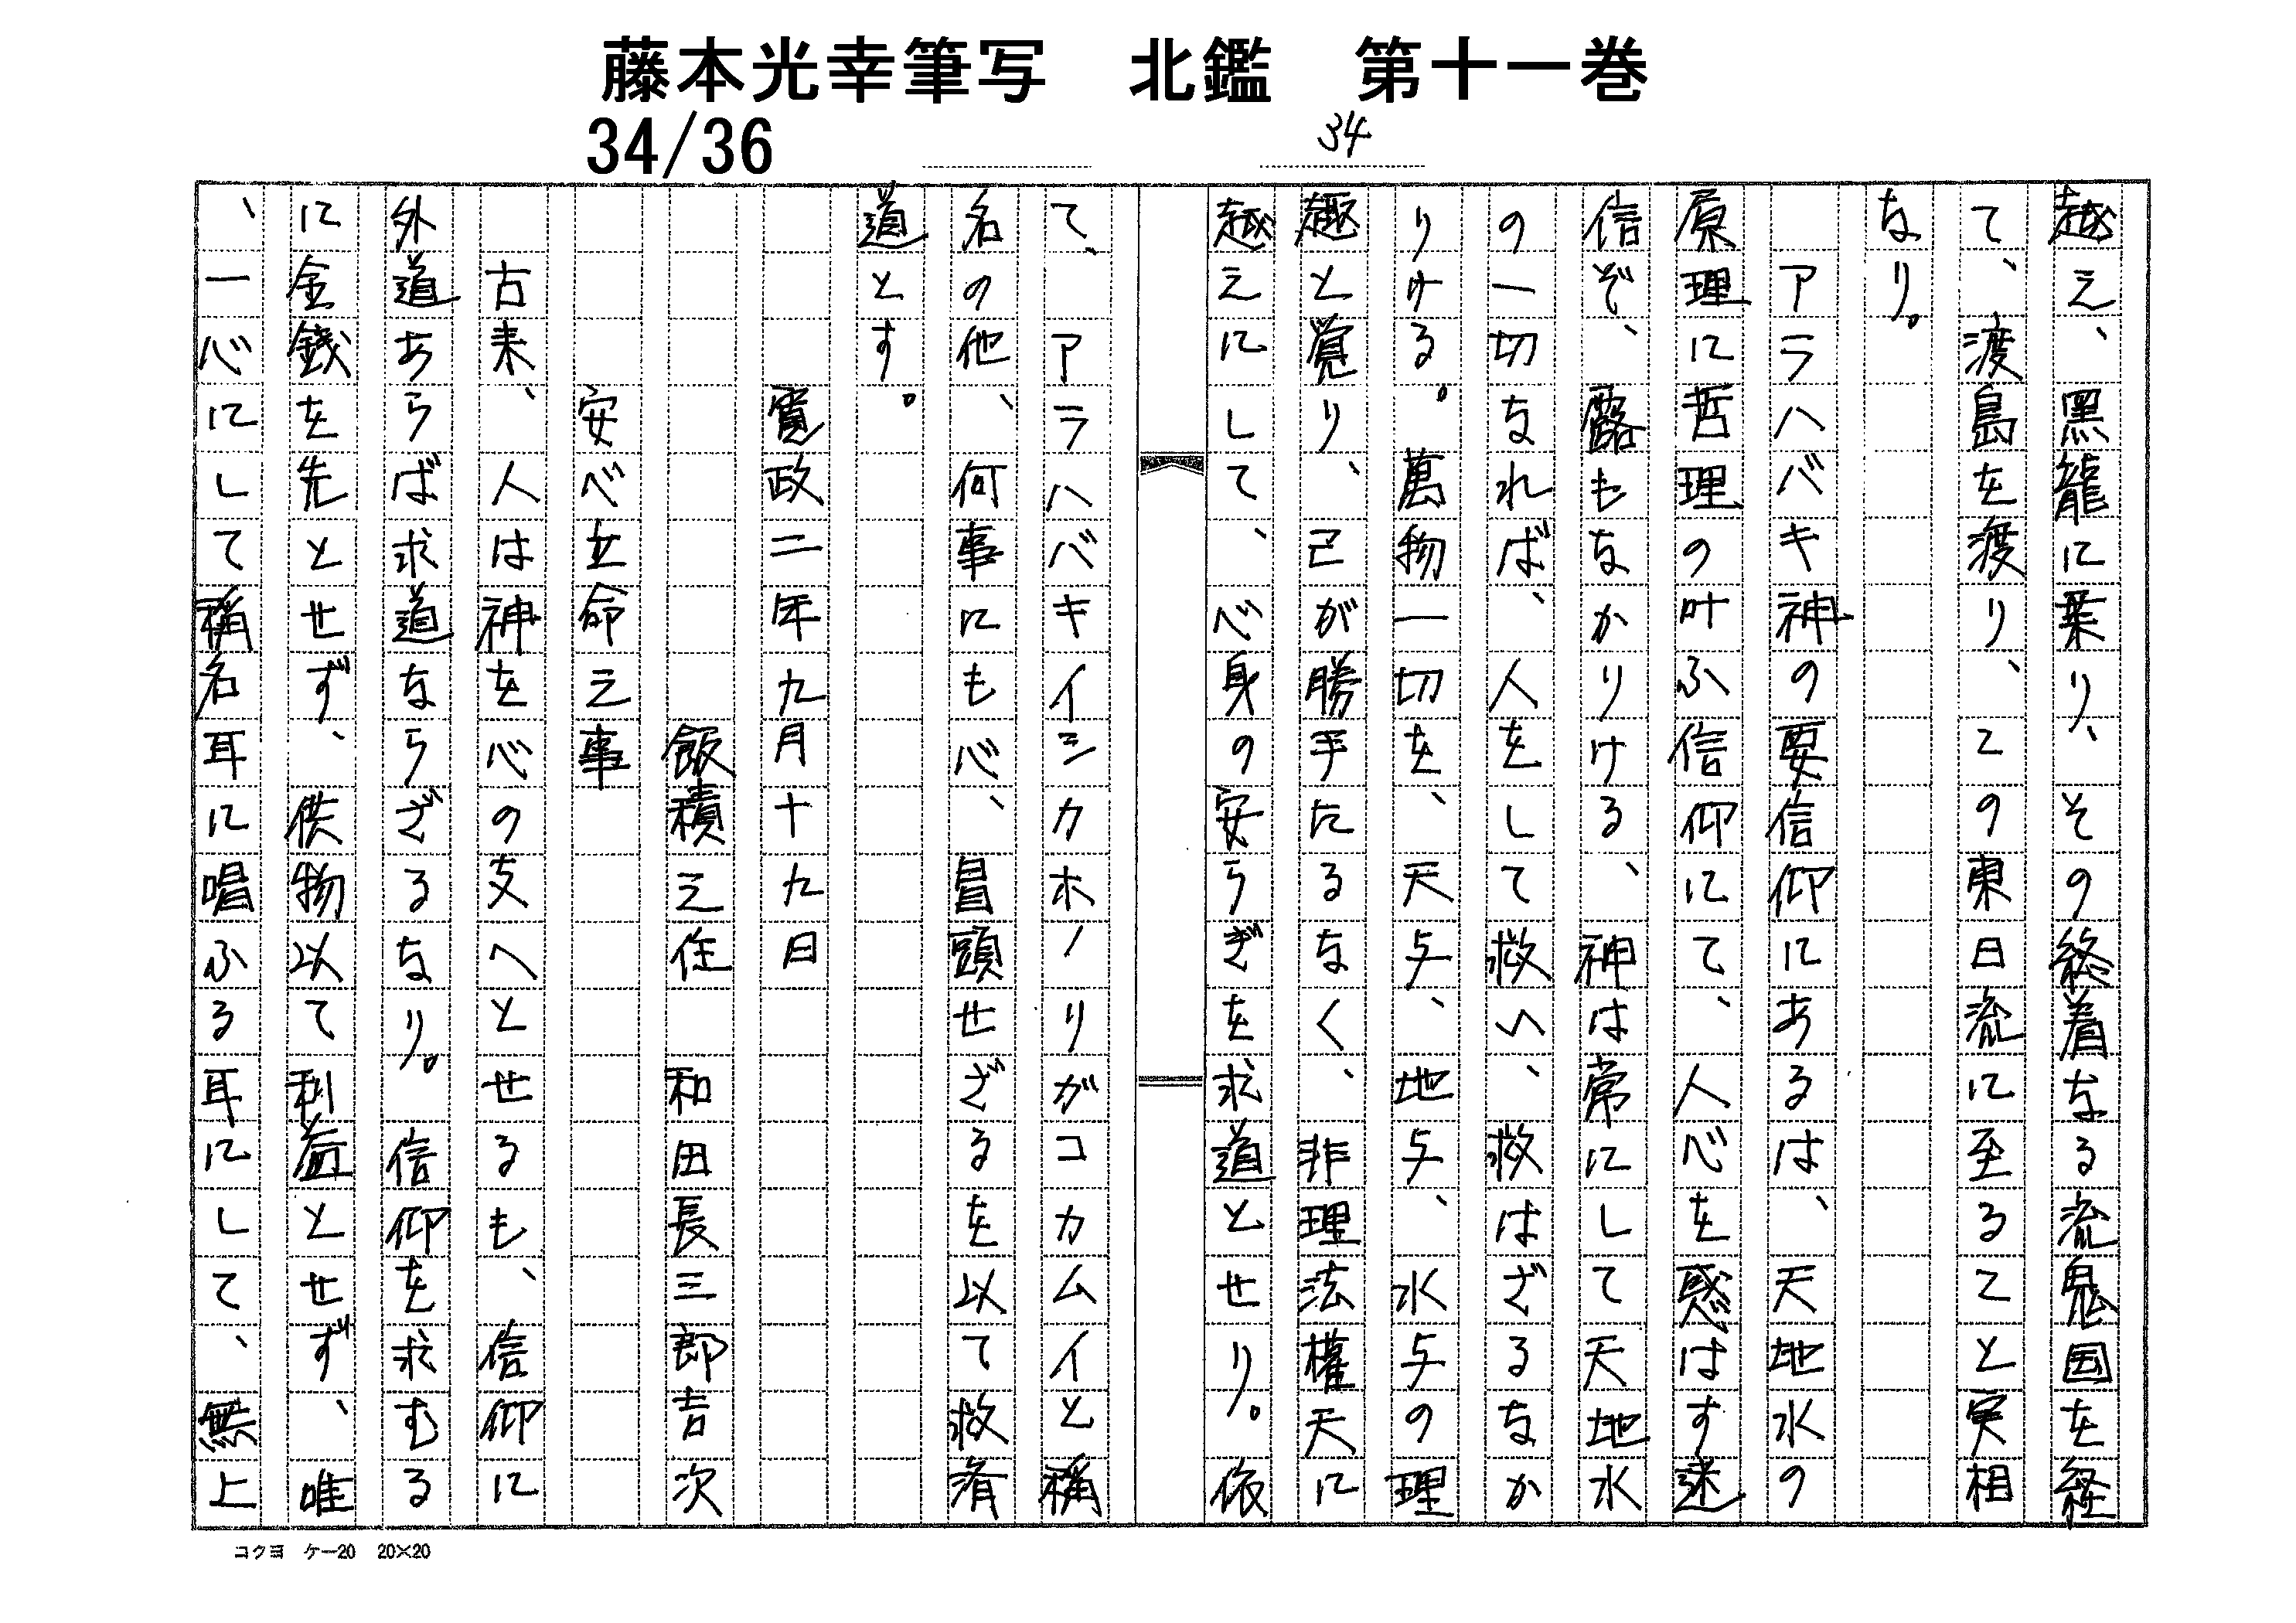 藤本光幸筆写　北鑑　第十一巻
34/36
34
越え、黒龍に葉り、その終着なる流鬼国を経
て、渡島を渡り、この東日流に至るこそ実相
なり。
アラハバキ神の要信仰にあるは、天地水の
原理に哲理の叶ふ信仰にて、人心を惑はす迷
信ぞ、露もなかりける、神は常にして天地水
の一切なれば、人をして救い、救はざるなか
りける。萬物一切を、天与、地与、水与の理
趣と覚り、己が勝手たるなく、非理法權天に
越えにして、心身の安らぎを求道とせり。依
て、アラハバキイシカホノリガコカムイと稱
名の他、何事にも心、冒頭せざるを以て救済
道とす。
寛政二年九月十九日
飯積之住　和田長三郎吉次
安心立命之事
古来、人は神を心の支へとせるも、信仰に
外道あらば求道ならざるなり。信仰を求むる
に金銭を先とせず、供物以て利益とせず、唯
、一心にして稱名耳に唱ふる耳にして、無上
コクヨ　ケー20　20×20